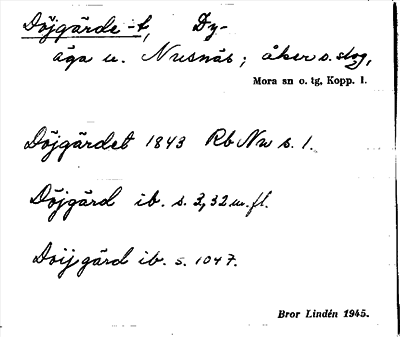 Döjgärde -t, Dy-
äga u. Nusnäs; åker o. skog,
Mora sn o. tg, Kopp. l.
Döjgärdet 1843 Rb Nu s. 1.
Döjgärd ib. s. 3, 32 m. fl.
Döijgärd ib. s. 1047.
Bror Lindén 1945.